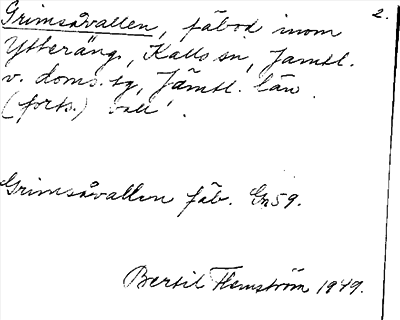 2.
Grimsåvallen, fäbod inom
Ytteräng, Kalls sn, Jämtl.
v. doms. tg, Jämtl. län.
(forts.) vall.
Grimsåvallen fäb. Gn59.
Bertil Flemström 1949.